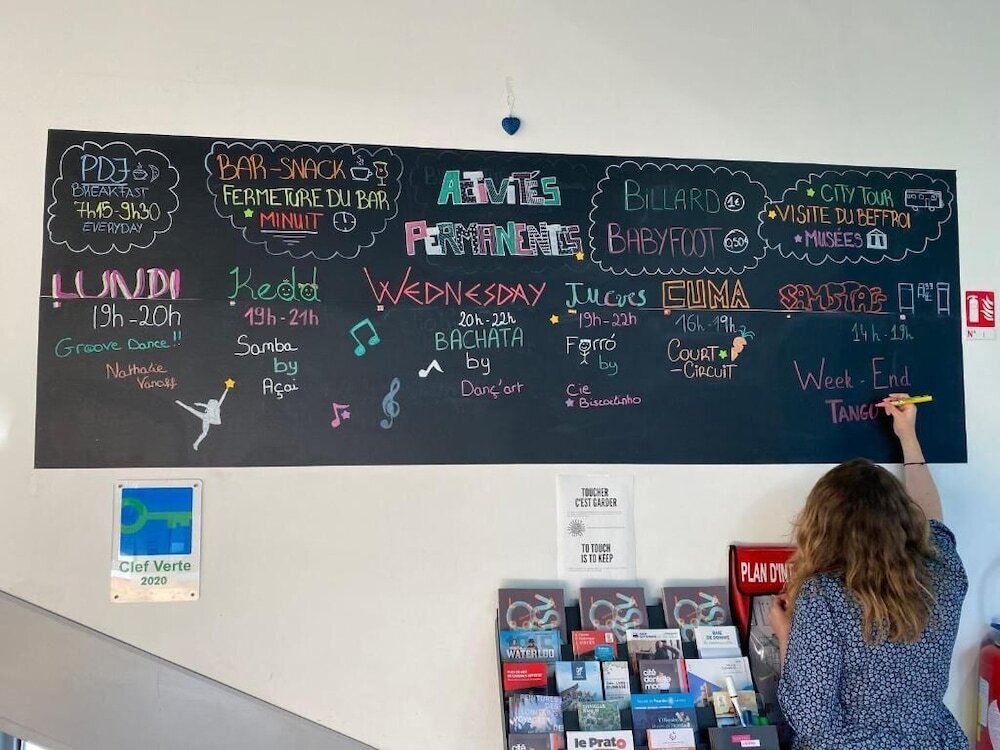 PDJ
BREAKFAST
7h15-9h30
EVERYDAY
BAR-SNACK
FERMETURE DU BAR
MINUIT
ACTIVITÉS
PERMANENTES
BILLARD 1€
BABYFOOT 0,50€
CITY TOUR
VISITE DU BEFFROI
MUSÉES
LUNDI
19h-20h
Groove Dance!!
Nathalie
Vanoff
Kedd
19h-21h
Samba
by
Açaí
WEDNESDAY
20h-22h
BACHATA
by
Danç'art
Jueves
19h-22h
Forró
by
Cie
Biscoitinho
CUMA
16h-19h
COURT
-CIRCUIT
SAMSTAG
14h-19h
Week-End
TANGO
Clef Verte
2020
TOUCHER
C'EST GARDER
TO TOUCH
IS TO KEEP
PLAN D'IN
WATERLOO
cité
dentelle
mode
le Prato
N° 1